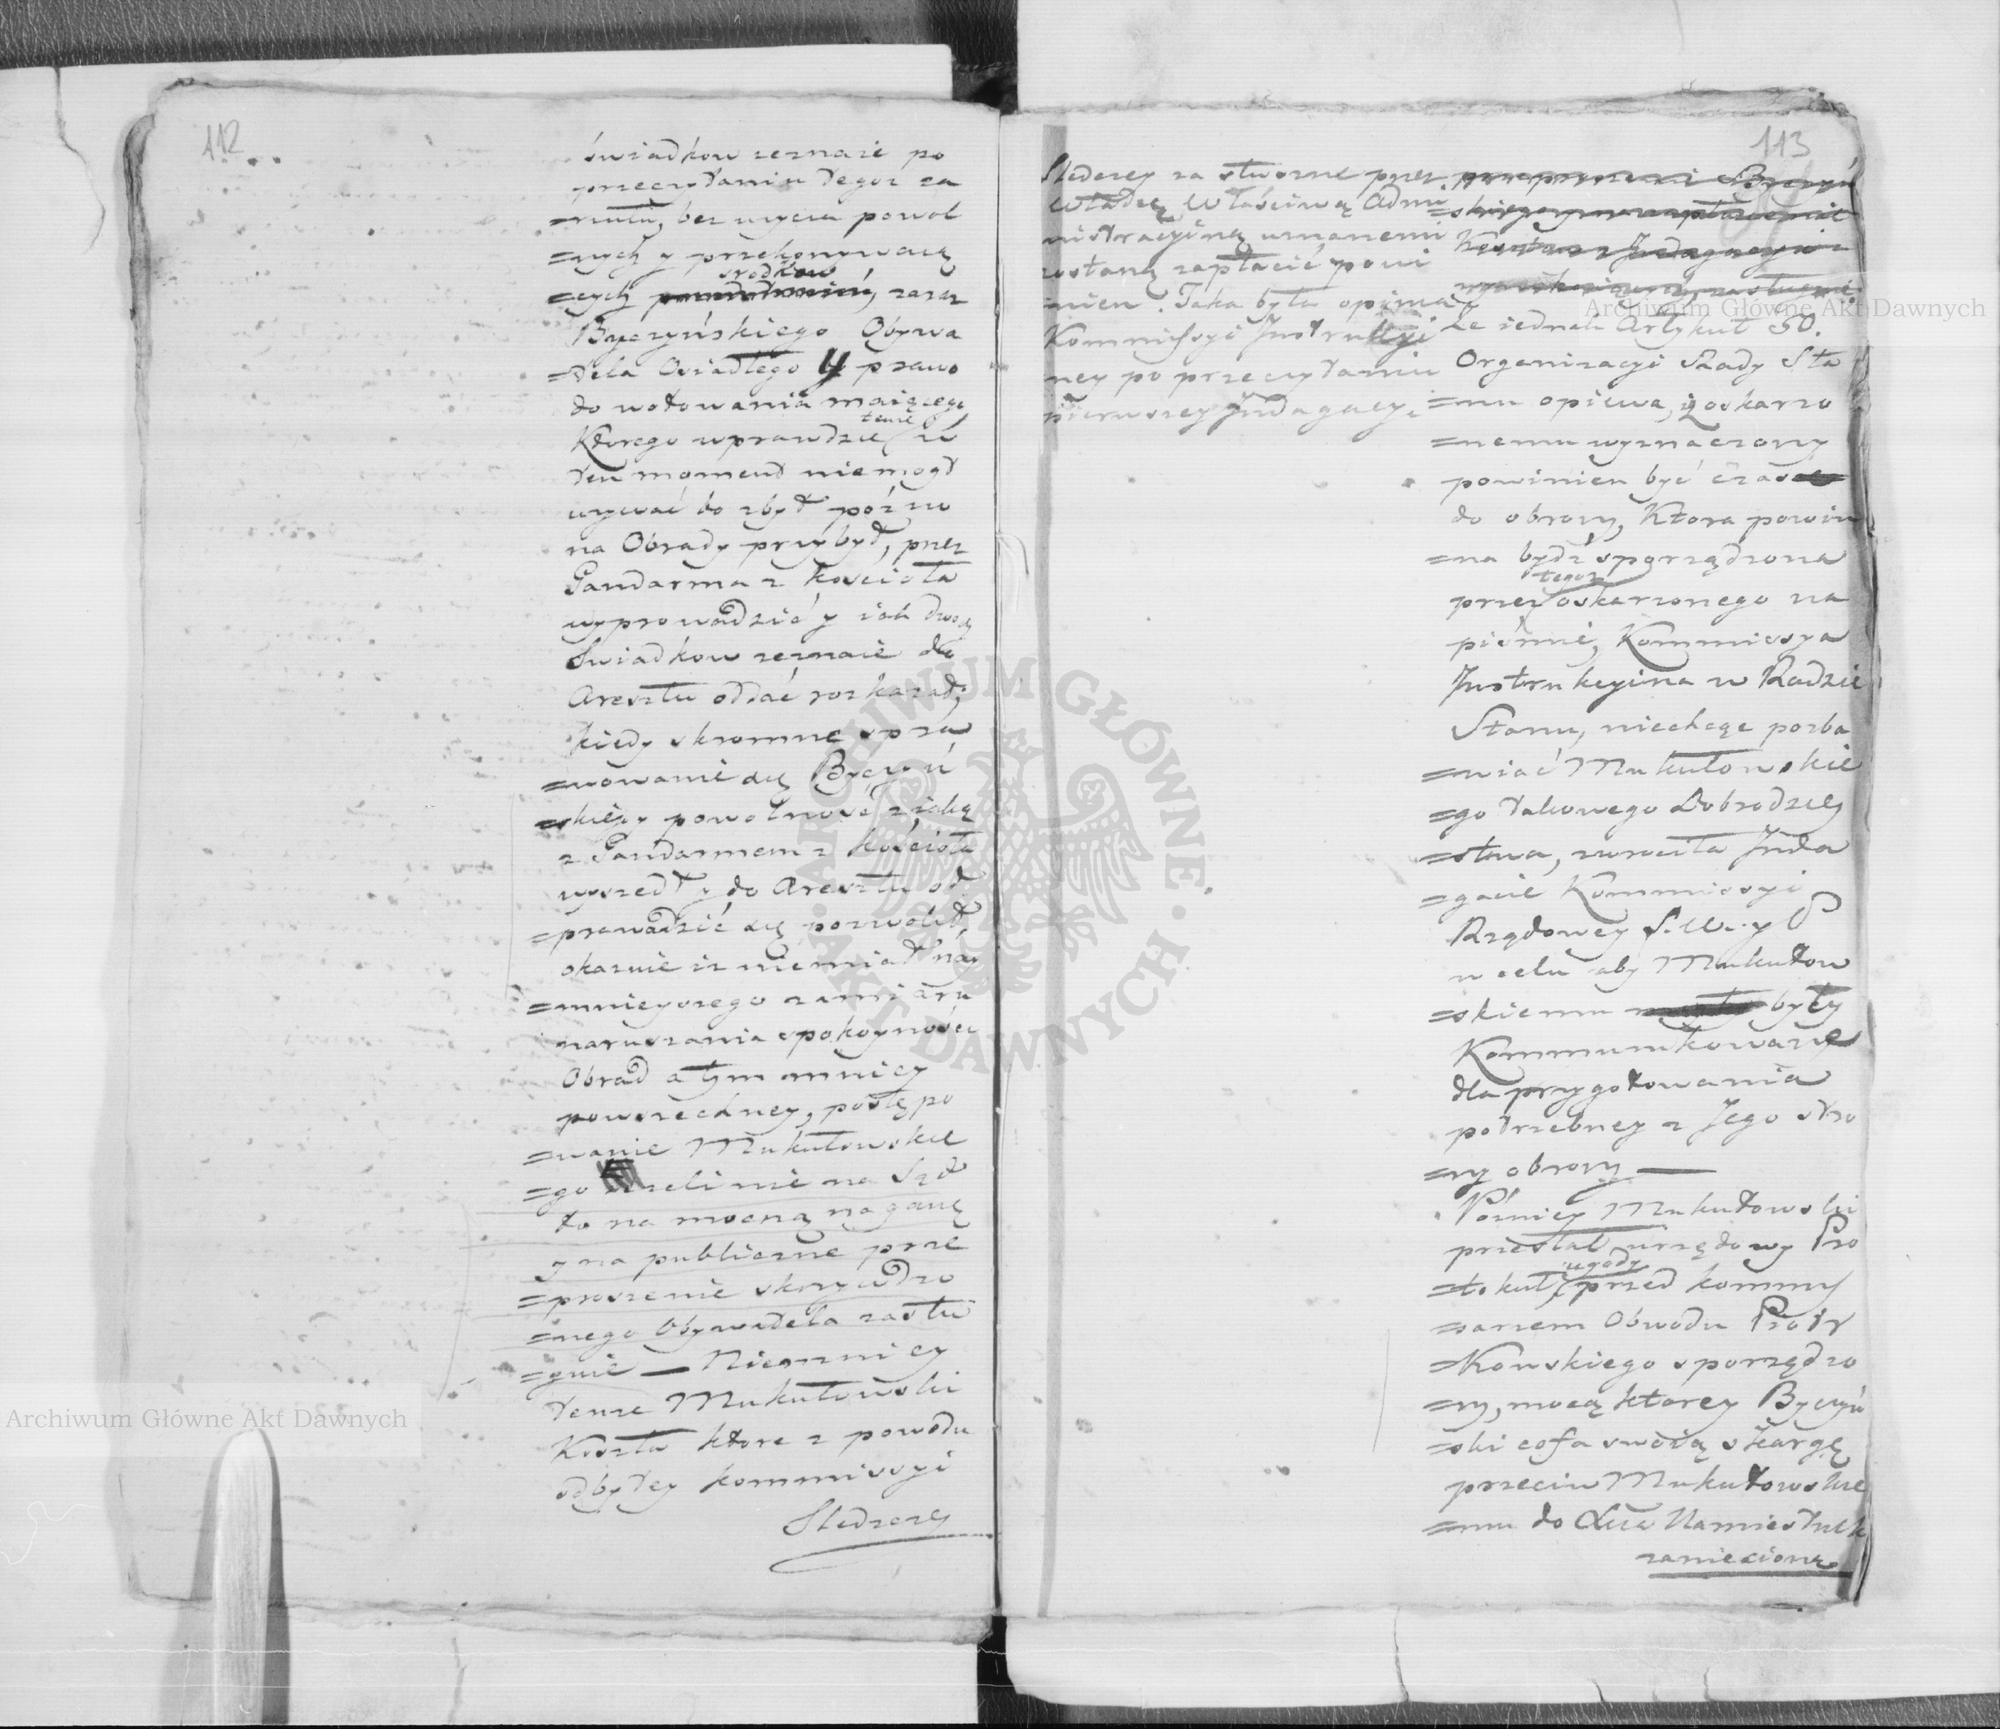 112
świadkow zeznaie po
przeczytaniu tegoż za
=rzutu, bez użycia powol
=nych y przekonywaią
srodkow
=cych zaraz
Byczyńskiego Obywa
=tela Osiadłego y prawo
do wotowania maiącego
Ktorego wprawdzie w
tenże
ten moment niemogł
używać bo zbyt pózno
na Obrady przybył, przez
Żandarma z kościoła
wyprowadzić y iak dwoch
Swiadkow zeznaie do
Aresztu oddać rozkazał,
kiedy skromne spra
=wowanie się Byczyń
=skiego y powolność z iaką
z Żandarmem z kościoła
wyszedł y do Aresztu od
=prowadzić się pozwolił,
okazuie iż niemiał nay
=mnieyszego zamiaru
naruszania spokoyności
Obrad a tym mniey
powszechney, postępo
=wanie Mukułowskie
=go ieżeli nie na Sąd
to na mocną naganę
y na publiczne prze
=proszenie skrzywdzo
=nego Obywatela zasłu
=guie — Niemniey
tenże Mukułowski
Koszta ktore z powodu
odbytey kommissyi
Sledczey
113
Sledczey za słuszne przez
Władzę Właściwą Admi
nistracyiną uznanemi
zostaną zapłacić powi
=nien. Taka była opinia
Kommissyi Instrukcyi
ney po przeczytaniu
pierwszey Indagacyi
Że iednak Artykuł 50.
Organizacyi Rady Sta
=nu opiewa, iż oskarzo
=nemu wyznaczony
powinien być czas
do obrony, Ktora powin
=na bydź sporządzona
tegoż
przez oskarzonego na
piśmie, Kommissya
Instrukcyina w Radzie
Stanu, niechcąc pozba
=wiać Mukułowskie
=go takowego Dobrodziey
=stwa, zwrociła Inda
=gacie Kommissyi
Rządowey S. W. y P
w celu aby Mukułow
=skiemu były
Kommunikowane
dla przygotowania
potrzebney z Jego stro
=ny obrony —
Pózniey Mukułowski
przesłał urzędowy Pro
ugody
=tokuł, przed kommis
=sarzem Obwodu Piotr
=Kowskiego sporządzo
=ny, mocą ktorey Byczyń
=ski cofa swoią skargę
przeciw Mukułowskie
=mu do Xcia Namiestnik
zaniesioną